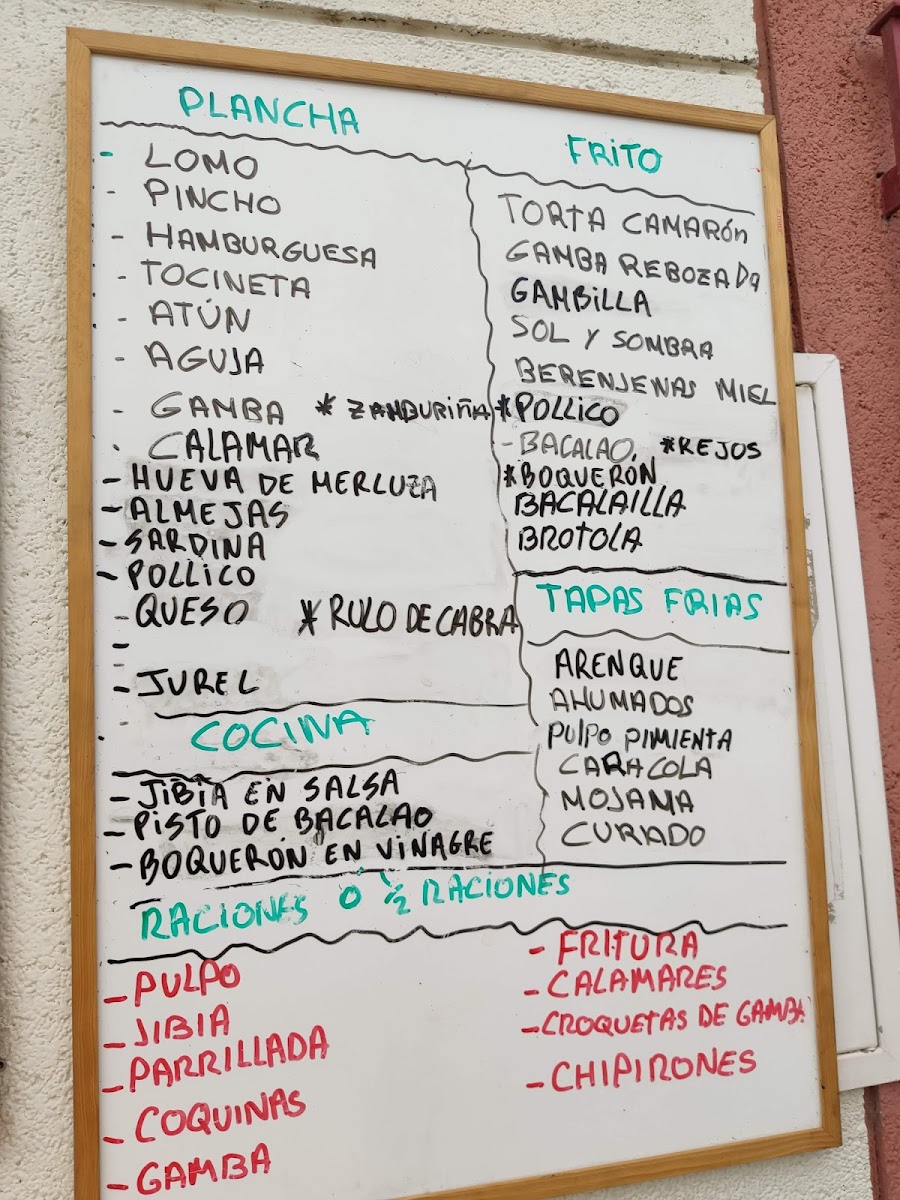 PLANCHA
- LOMO
- PINCHO
- HAMBURGUESA
- TOCINETA
- ATÚN
- AGUJA
- GAMBA * ZAMBURIÑA
- CALAMAR
- HUEVA DE MERLUZA
- ALMEJAS
- SARDINA
- POLLICO
- QUESO * RULO DE CABRA
- JUREL
FRITO
TORTA CAMARÓN
GAMBA REBOZADA
GAMBILLA
SOL Y SOMBRA
BERENJENAS MIEL
*POLLICO
- BACALAO. *REJOS
*BOQUERÓN
BACALAILLA
BROTOLA
TAPAS FRIAS
ARENQUE
AHUMADOS
PULPO PIMIENTA
CARACOLA
MOJAMA
CURADO
COCINA
- JIBIA EN SALSA
- PISTO DE BACALAO
- BOQUERÓN EN VINAGRE
RACIONES O 1/2 RACIONES
- PULPO
- JIBIA
- PARRILLADA
- COQUINAS
- GAMBA
- FRITURA
- CALAMARES
- CROQUETAS DE GAMBA
- CHIPIRONES